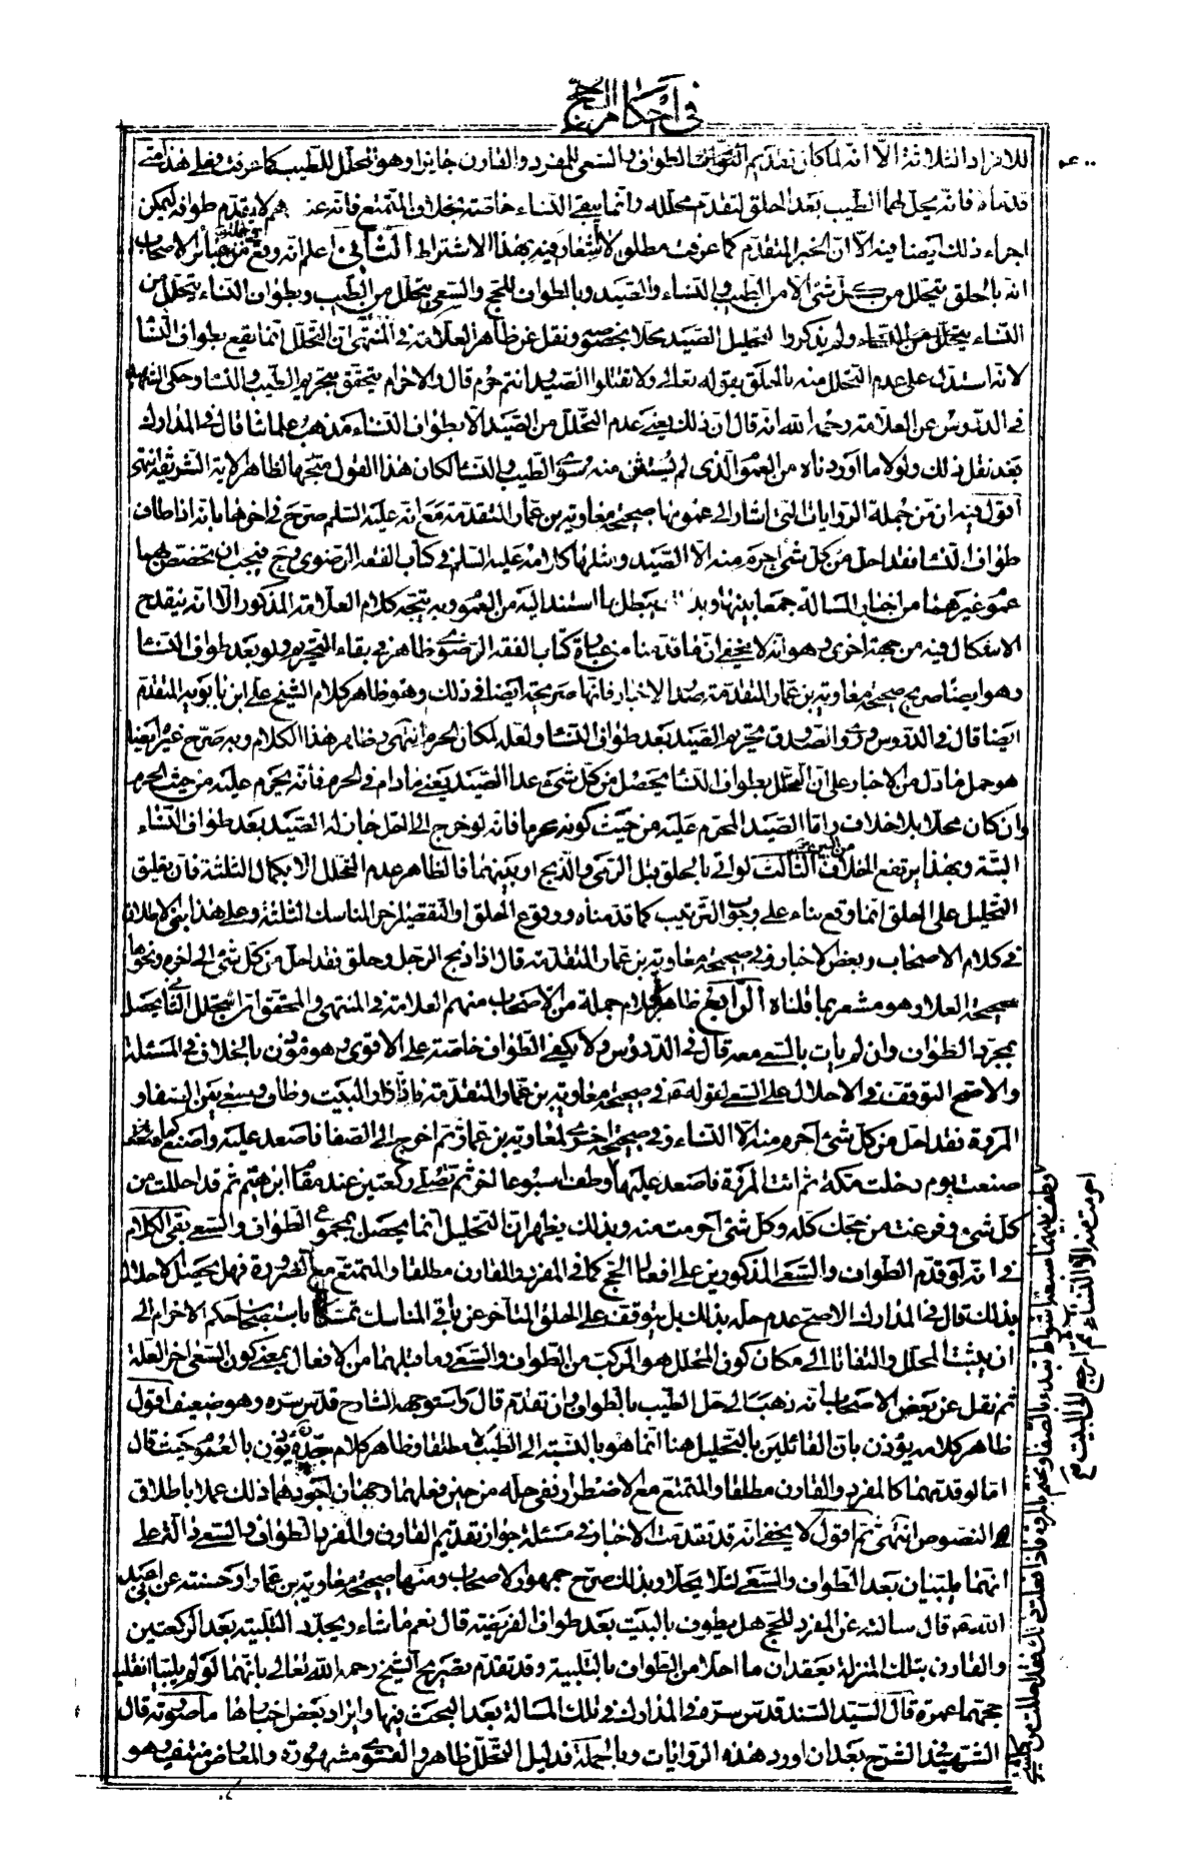 في احكام الحج
للافراد الثلاثة الا انه لما كان تقديم الطواف والسعى للمفرد والقارن جايزا وهو المحلل للطيب كما عرفت فعلى هذا متى
قدماه فانه يحل لهما الطيب بعد الحلق لتقدم محلله وانما يبقى النساء خاصة بخلاف المتمتع فانه لا يقدم طوافه ليمكن
اجراء ذلك ايضا فيه الا ان الخبر المتقدم كما عرفت مطلق لا اشعار فيه بهذا الاشتراط الثانى اعلم انه وقع في عبائر الاصحاب
انه بالحلق يتحلل من كل شئ الا من الطيب والنساء والصيد وبالطواف للحج والسعى يتحلل من الطيب وبطواف النساء يتحلل من
النساء ولم يذكروا لتحليل الصيد محلا بخصوصه ونقل عن ظاهر العلامة في المنتهى ان التحلل انما يقع بطواف النساء
لانه استدل على عدم التحلل منه بالحلق بقوله تعالى ولا تقتلوا الصيد وانتم حرم قال والاحرام يتحقق بتحريم الطيب والنساء وحكى الشهيد
في الدروس عن العلامة رحمه الله انه قال ان ذلك يعنى عدم التحلل من الصيد الا بطواف النساء مذهب علمائنا قال في المدارك
بعد نقل ذلك ولولا ما اوردناه من العموم الذى لم يستثنى منه سوى الطيب والنساء لكان هذا القول متجها لظاهر الاية الشريفة انتهى
اقول فيه ان من جملة الروايات التى اشار الى عمومها صحيحة معاوية بن عمار المتقدمة مع انه عليه السلم صرح في اخرها بانه اذا طاف
طواف النساء فقد احل من كل شئ احرم منه الا الصيد ومثلها كلامه عليه السلم في كتاب الفقه الرضوى وح فيجب ان تخصص بهما
عموم غيرهما من اخبار المسألة جمعا بينها وبذلك يبطل ما استند اليه من العموم وبه يتجه كلام العلامة المذكور الا انه ينقدح
الاشكال فيه من جهة اخرى وهو انه لا يخفى ان ما قدمنا من عبارة كتاب الفقه الرضوى ظاهر في بقاء التحريم ولو بعد طواف النساء
وهو ايضا صريح صحيحة معاوية بن عمار المتقدمة صدر الاخبار فانها صريحة ايضا في ذلك وهو ظاهر كلام الشيخ على ابن بابويه المتقدم
ايضا قال في الدروس وروى الصدوق تحريم الصيد بعد طواف النساء ولعله لمكان الحرم انتهى وظاهر هذا الكلام وبه صرح غيره ايضا
هو حمل ما دل من الاخبار على ان التحلل بطواف النساء يحصل من كل شئ عدا الصيد يعنى ما دام في الحرم فانه يحرم عليه من حيث الحرم
وان كان محلا بلا خلاف واما الصيد المحرم عليه من حيث كونه محرما فانه لو خرج الى الحل جاز له الصيد بعد طواف النساء
البتة وبهذا يرتفع الخلاف الثالث لو اتى بالحلق قبل الرمى والذبح او بينهما فالظاهر عدم التحلل الا بكمال الثلثة فان تعليق
التحليل على الحلق انما وقع بناء على وجوب الترتيب كما قدمناه ووقوع الحلق او التقصيراخر المناسك الثلثة وعلى هذا بنى الاطلاق
في كلام الاصحاب وبعض الاخبار وفي صحيحة معاوية بن عمار المتقدمة قال اذا ذبح الرجل وحلق فقد احل من كل شئ الى اخره ونحوها
صحيحة العلا وهو مشعر بما قلناه الرابع ظاهر كلام جملة من الاصحاب منهم العلامة في المنتهى والمحقق ان التحلل الثانى يحصل
بمجرد الطواف وان لم يات بالسعى معه قال في الدروس ولا يكفى الطواف خاصة على الاقوى وهو مؤذن بالخلاف في المسئلة
والاصح التوقف في الاحلال على السعى لقوله ع في صحيحة معاوية بن عمار المتقدمة فاذا زار البيت وطاف وسعى بين الصفا و
المروة فقد احل من كل شئ احرم منه الا النساء وفي صحيحة اخرى لمعاوية بن عمار ثم اخرج الى الصفا فاصعد عليه واصنع كما
صنعت يوم دخلت مكة ثم ائت المروة فاصعد عليها وطف اسبوعا اخر ثم تصلى ركعتين عند مقام ابرهيم ثم قد احللت من
كل شئ وفرغت من حجك كله وكل شئ احرمت منه وبذلك يظهر ان التحليل انما يحصل بمجموع الطواف والسعى بقى الكلام
في انه لو قدم الطواف والسعى المذكورين على افعال الحج كما في المفرد والقارن مطلقا والمتمتع مع الضرورة فهل يحصل الاحلال
بذلك قال في المدارك الاصح عدم حله بذلك بل يتوقف على الحلق المتاخر عن باقى المناسك تمسكا باستصحاب حكم الاحرام الى
ان يثبت المحلل والتفاتا الى مكان كون المحلل هو المركب من الطواف والسعى وما قبلهما من الافعال بمعنى كون السعى اخر العلة
ثم نقل عن بعض الاصحاب انه ذهب الى حل الطيب بالطواف وان تقدم قال واستوجهه الشارح قدس سره وهو ضعيف اقول
ظاهر كلامه يؤذن بان القائلين بالتحليل هنا انما هو بالنسبه الى الطيب لا مطلقا وظاهر كلام جده يؤذن بالعموم حيث قال
اما لو قدمهما كالمفرد والقارن مطلقا والمتمتع مع الاضطرار ففى حله من حين فعلهما وجهان اجودهما ذلك عملا باطلاق
النصوص انتهى ثم اقول لا يخفى انه قد تقدمت الاخبار في مسئلة جواز تقديم القارن والمفرد الطواف والسعى دالة على
انهما يلبيان بعد الطواف والسعى لئلا يحلا وبذلك صرح جمهور الاصحاب ومنها صحيحة معاوية بن عمار او حسنته عن ابى عبد
الله ع قال سالته عن المفرد للحج هل يطوف بالبيت بعد طواف الفريضة قال نعم ما شاء ويجدد التلبية بعد الركعتين
والقارن بتلك المنزلة يعقدان ما احلا من الطواف بالتلبية وقد تقدم تصريح الشيخ رحمه الله تعالى بانهما لو لم يلبيا انقلب
حجتهما عمرة قال السيد السند قدس سره في المدارك في تلك المسالة بعد البحث فيها وايراد بعض اخبارها ما صورته قال
الشهيد في الشرح بعد ان اورد هذه الروايات وبالجملة فدليل التحلل ظاهر والفتوى مشهورة والمعارض منتف وهو
وطف بينهما سبعة اشواط تبدء بالصفا وتختم بالمروة فاذا فعلت ذلك فقد احللت من كل شئ
احرمت منه الا النساء ثم ارجع الى البيت